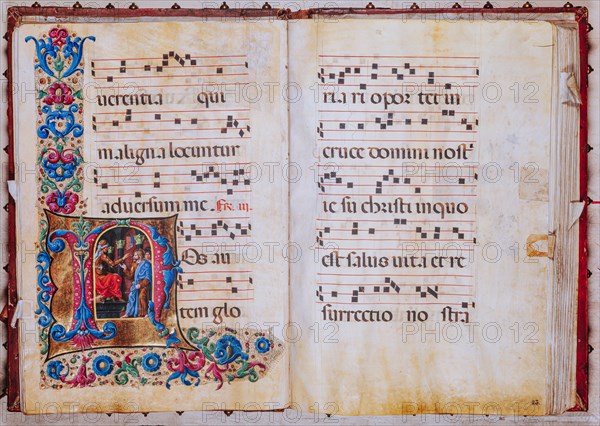 uerentia qui
maligna locuntur
aduersum me.
N Os au
tem glo
ria ri opor tet in
cruce domini nost
ie su christi in quo
est salus uita et re
surrectio no stra
PHOTO12